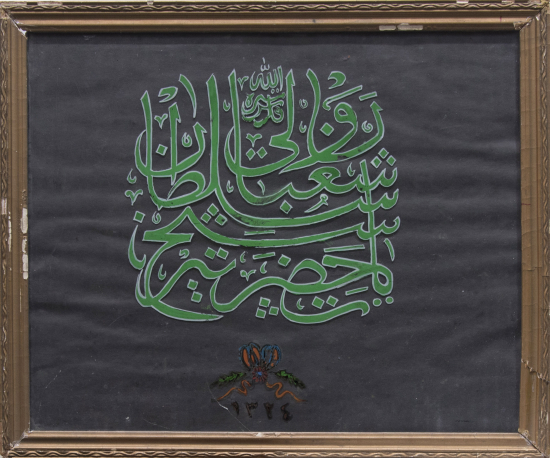 يا حضرت پير
شيخ
سلطان
شعبان
ولى
قدس الله سره
١٣٢٤